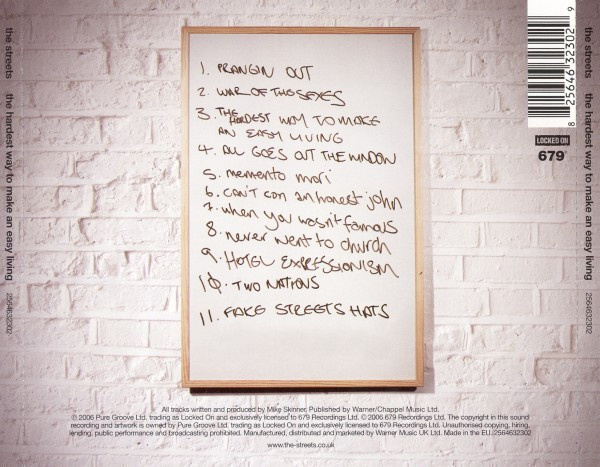 the streets   the hardest way to make an easy living   2564632302
1. PRANGIN OUT
2. WAR OF THE SEXES
3. THE HARDEST WAY TO MAKE
AN EASY LIVING
4. ALL GOES OUT THE WINDOW
5. memento mori
6. can't con an honest john
7. when you wasn't famous
8. never went to church
9. HOTEL EXPRESSIONISM
10. TWO NATIONS
11. FAKE STREETS HATS
8 25646 32302 9
LOCKED ON
679
the streets   the hardest way to make an easy living   2564632302
All tracks written and produced by Mike Skinner. Published by Warner/Chappel Music Ltd.
℗ 2006 Pure Groove Ltd. trading as Locked On and exclusively licensed to 679 Recordings Ltd. © 2006 679 Recordings Ltd. The copyright in this sound
recording and artwork is owned by Pure Groove Ltd. trading as Locked On and exclusively licensed to 679 Recordings Ltd. Unauthorised copying, hiring,
lending, public performance and broadcasting prohibited. Manufactured, distributed and marketed by Warner Music UK Ltd. Made in the EU. 2564632302
www.the-streets.co.uk